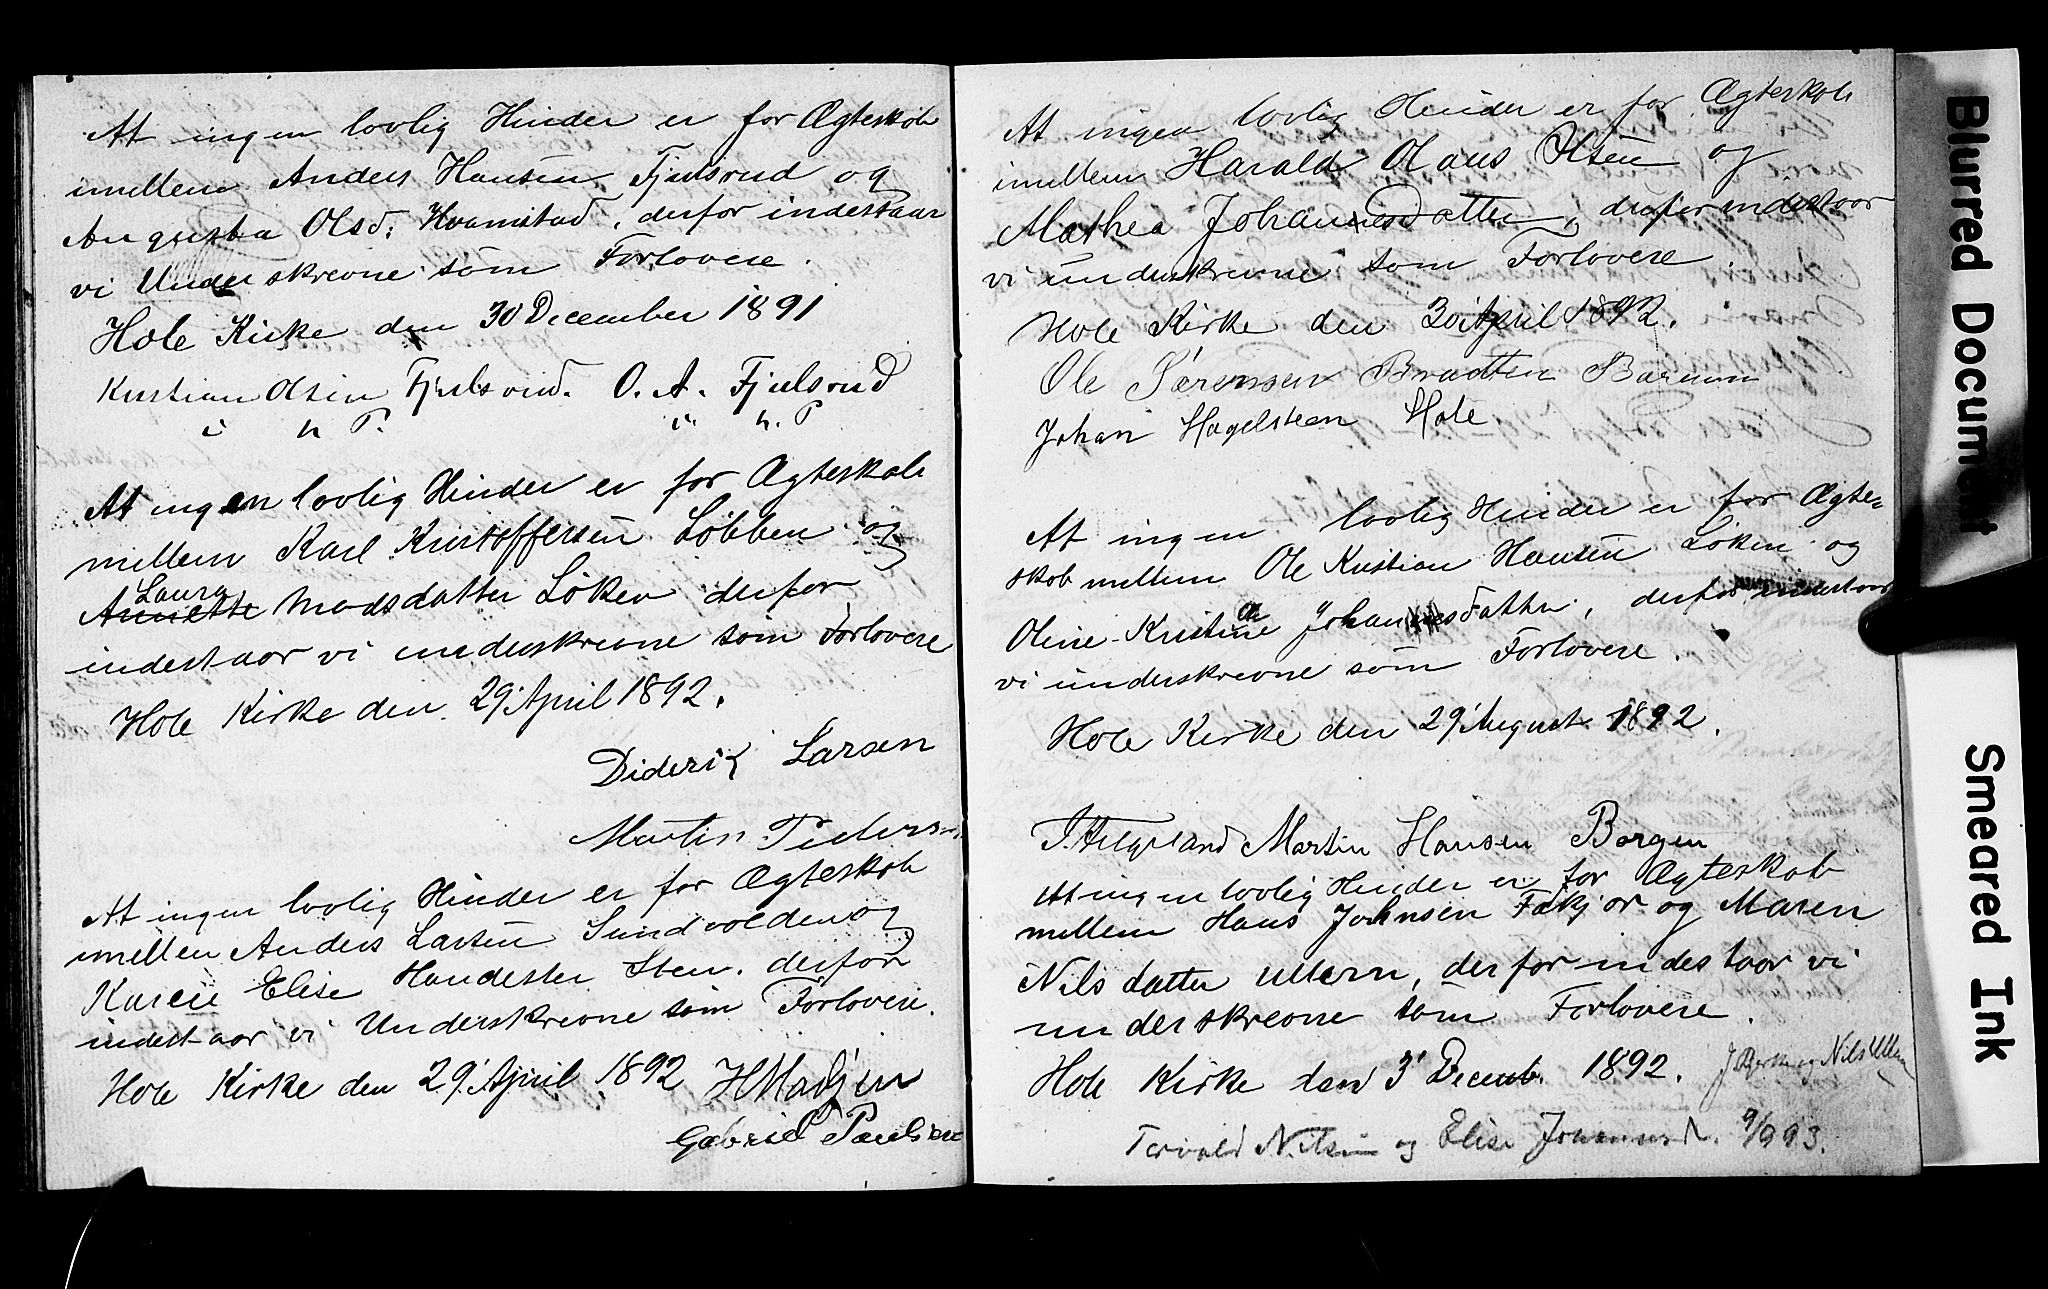 At ingen lovlig Hinder er for Ægteskab
imellem Anders Hansen Fjulsrud og
Augusta Olsd. Hvamstad, derfor indestaar
vi Underskrevne som Forlovere.
Hole Kirke den 30 December 1891
Kristian Olsen Fjulsrud. O. A. Fjulsrud
i h. P. i. h. P
At ingen lovlig Hinder er for Ægteskab
mellem Karl Kristoffersen Løbben og
Laura
Annette Madsdatter Løken derfor
indestaar vi underskrevne som Forlovere
Hole Kirke den 29' April 1892.
Diderik Larsen
Martin Pedersen
At ingen lovlig Hinder er for Ægteskab
imellem Anders Larsen Sundvolden og
Karen Elise Hansdatter Sten. derfor
indestaar vi Underskrevne som Forlovere.
Hole Kirke den 29' April 1892 H Madsen
Gabriel Paulsen
At ingen lovlig Hinder er for Ægteskab
imellem Harald Olaus Olsen og
Mathea Johannesdatter, derfor indestaar
vi underskrevne som Forlovere.
Hole Kirke den 30 April 1892.
Ole Sørensen Braatten Bærum
Johan Hagelsteen Hole
At ingen lovlig Hinder er for Ægte=
skab mellem Ole Kristian Hansen Løken og
Oline Kristine Johannesdatter, derfor indestaar
vi underskrevne som Forlovere.
Hole Kirke den 29' August 1892.
J. Helgeland Martin Hansen Borgen
At ingen lovlig Hinder er for Ægteskab
mellem Hans Johnsen Fækjor og Maren
Nilsdatter Ullern, derfor indestaar vi
underskrevne som Forlovere.
Hole Kirke den 3' Decemb. 1892. J Berke og Nils Ullern
Torvald Nilsen og Elise Johannesd. 9/9 93.
Blurred Document
Smeared Ink